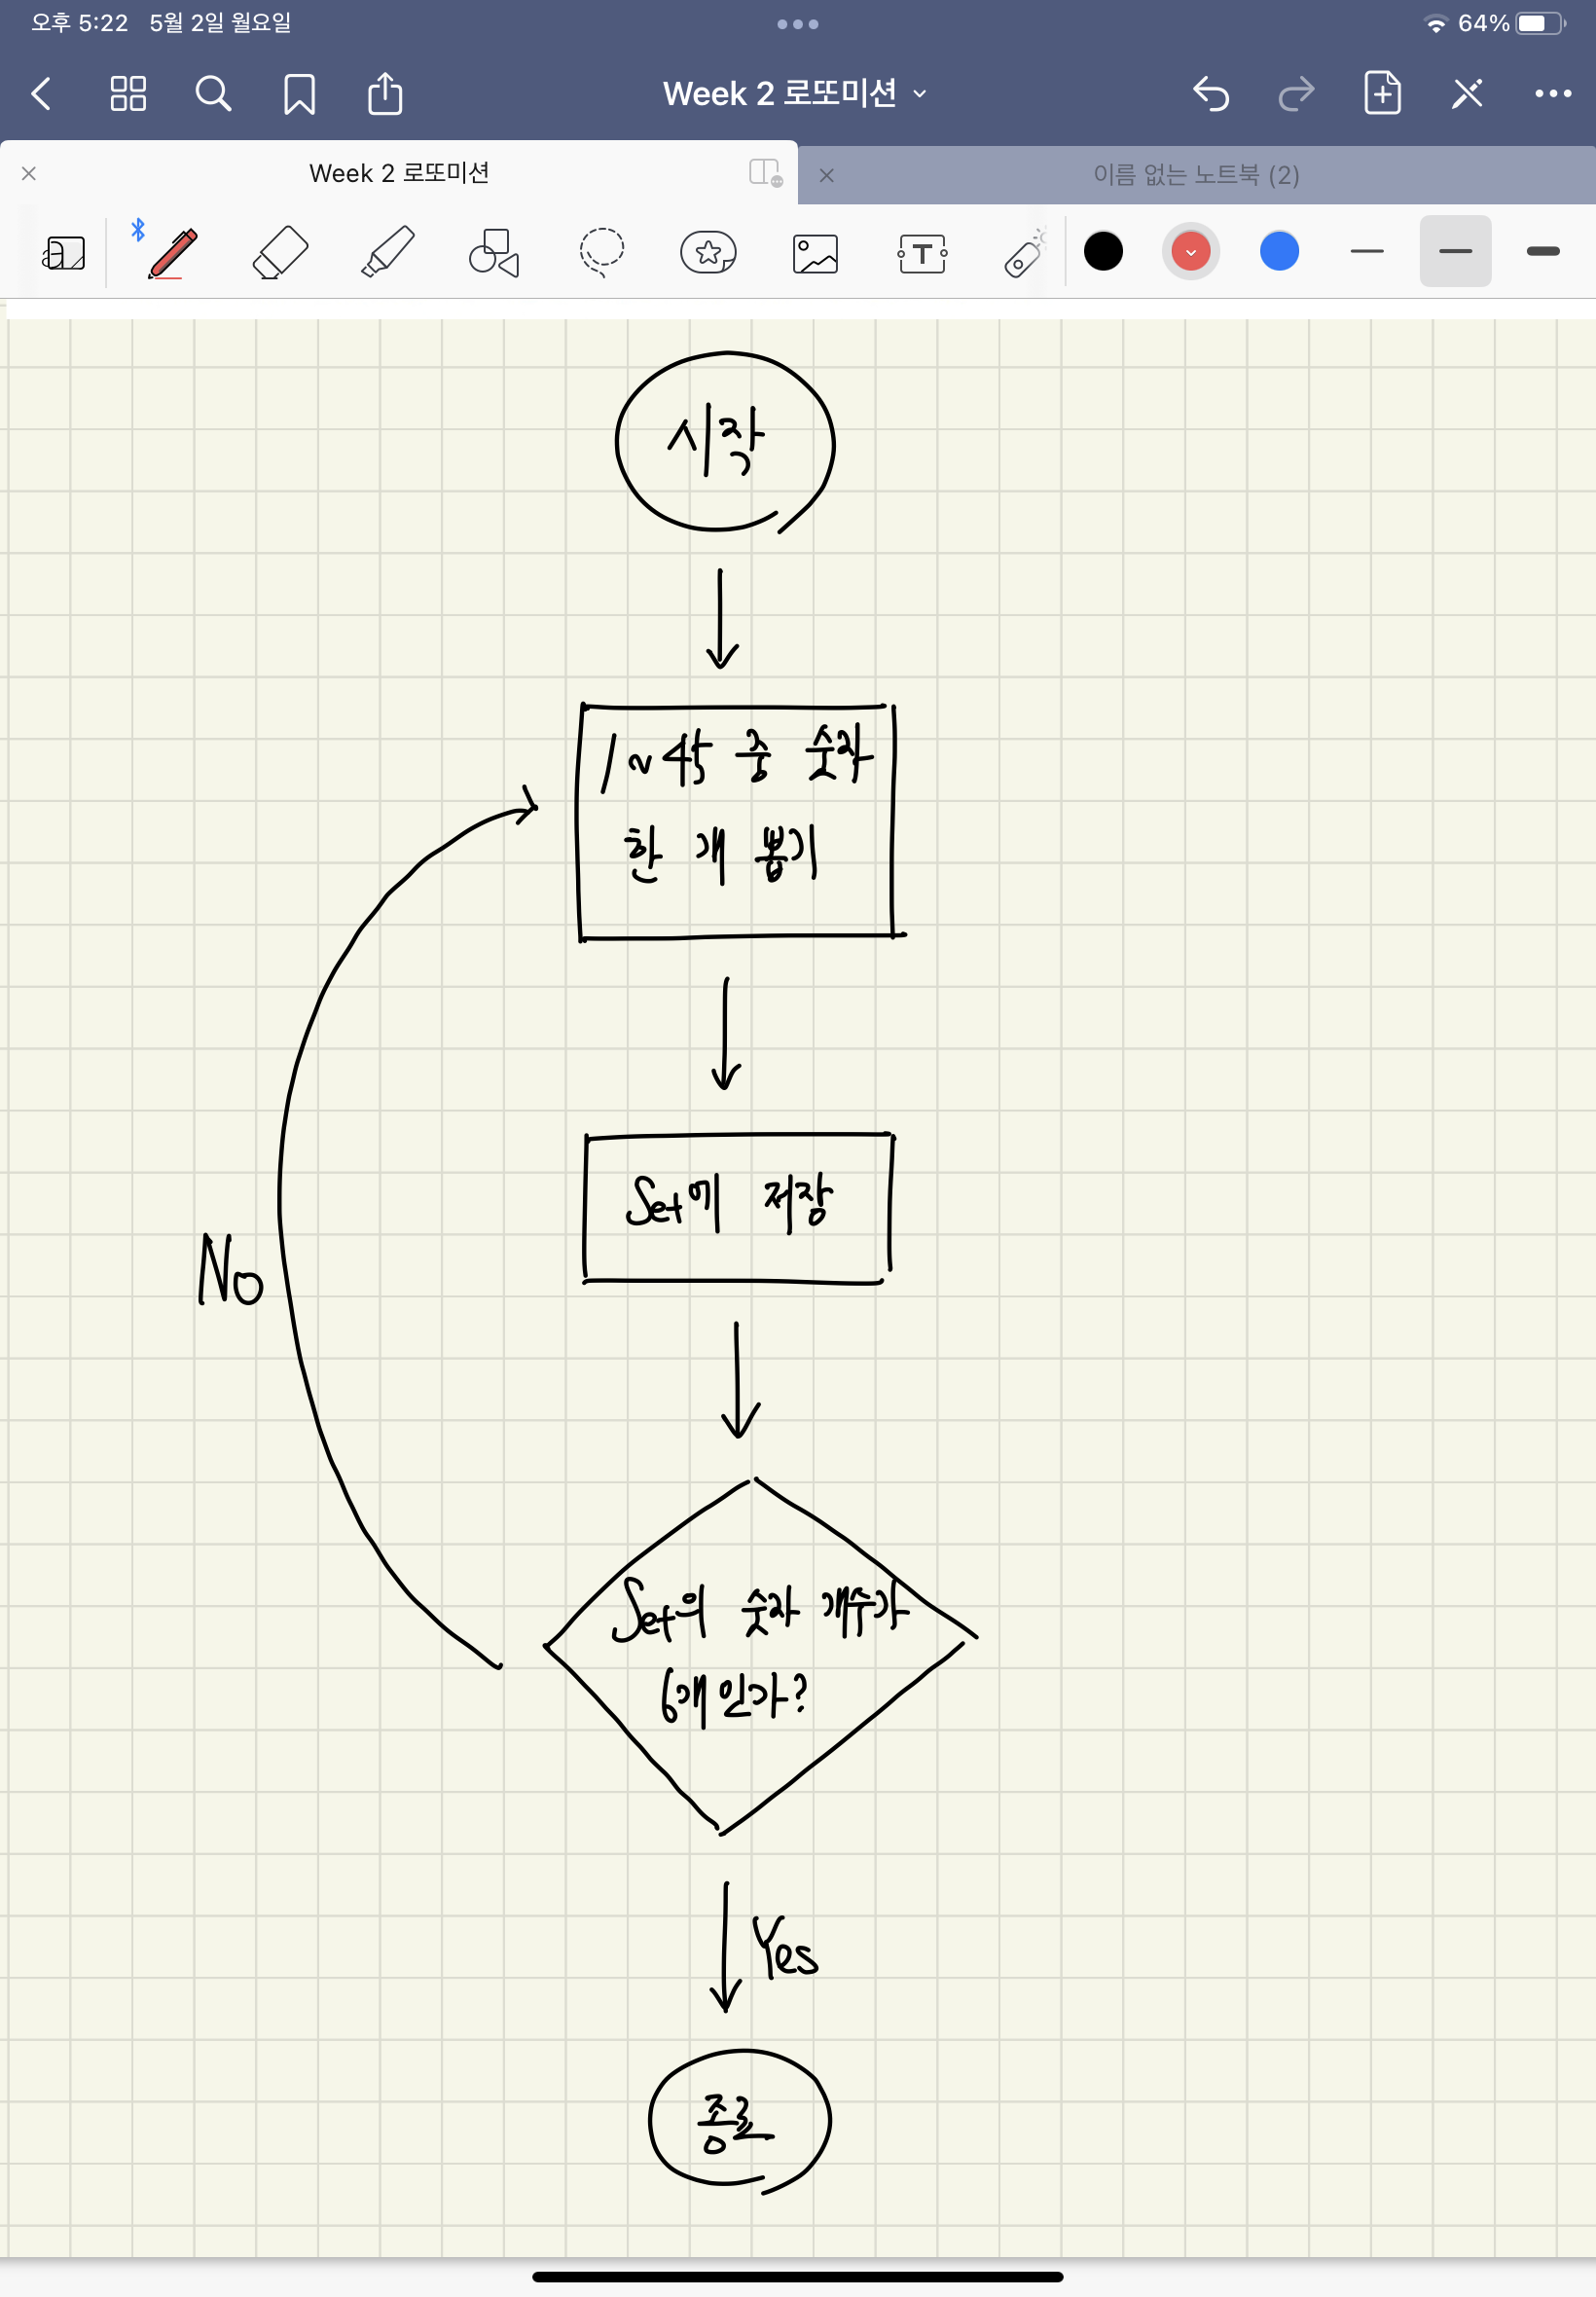 오후 5:22 5월 2일 월요일
64%
Week 2 로또미션
Week 2 로또미션
이름 없는 노트북 (2)
시작
1~45 중 숫자
한 개 뽑기
Set에 저장
No
Set의 숫자 개수가
6개인가?
Yes
종료